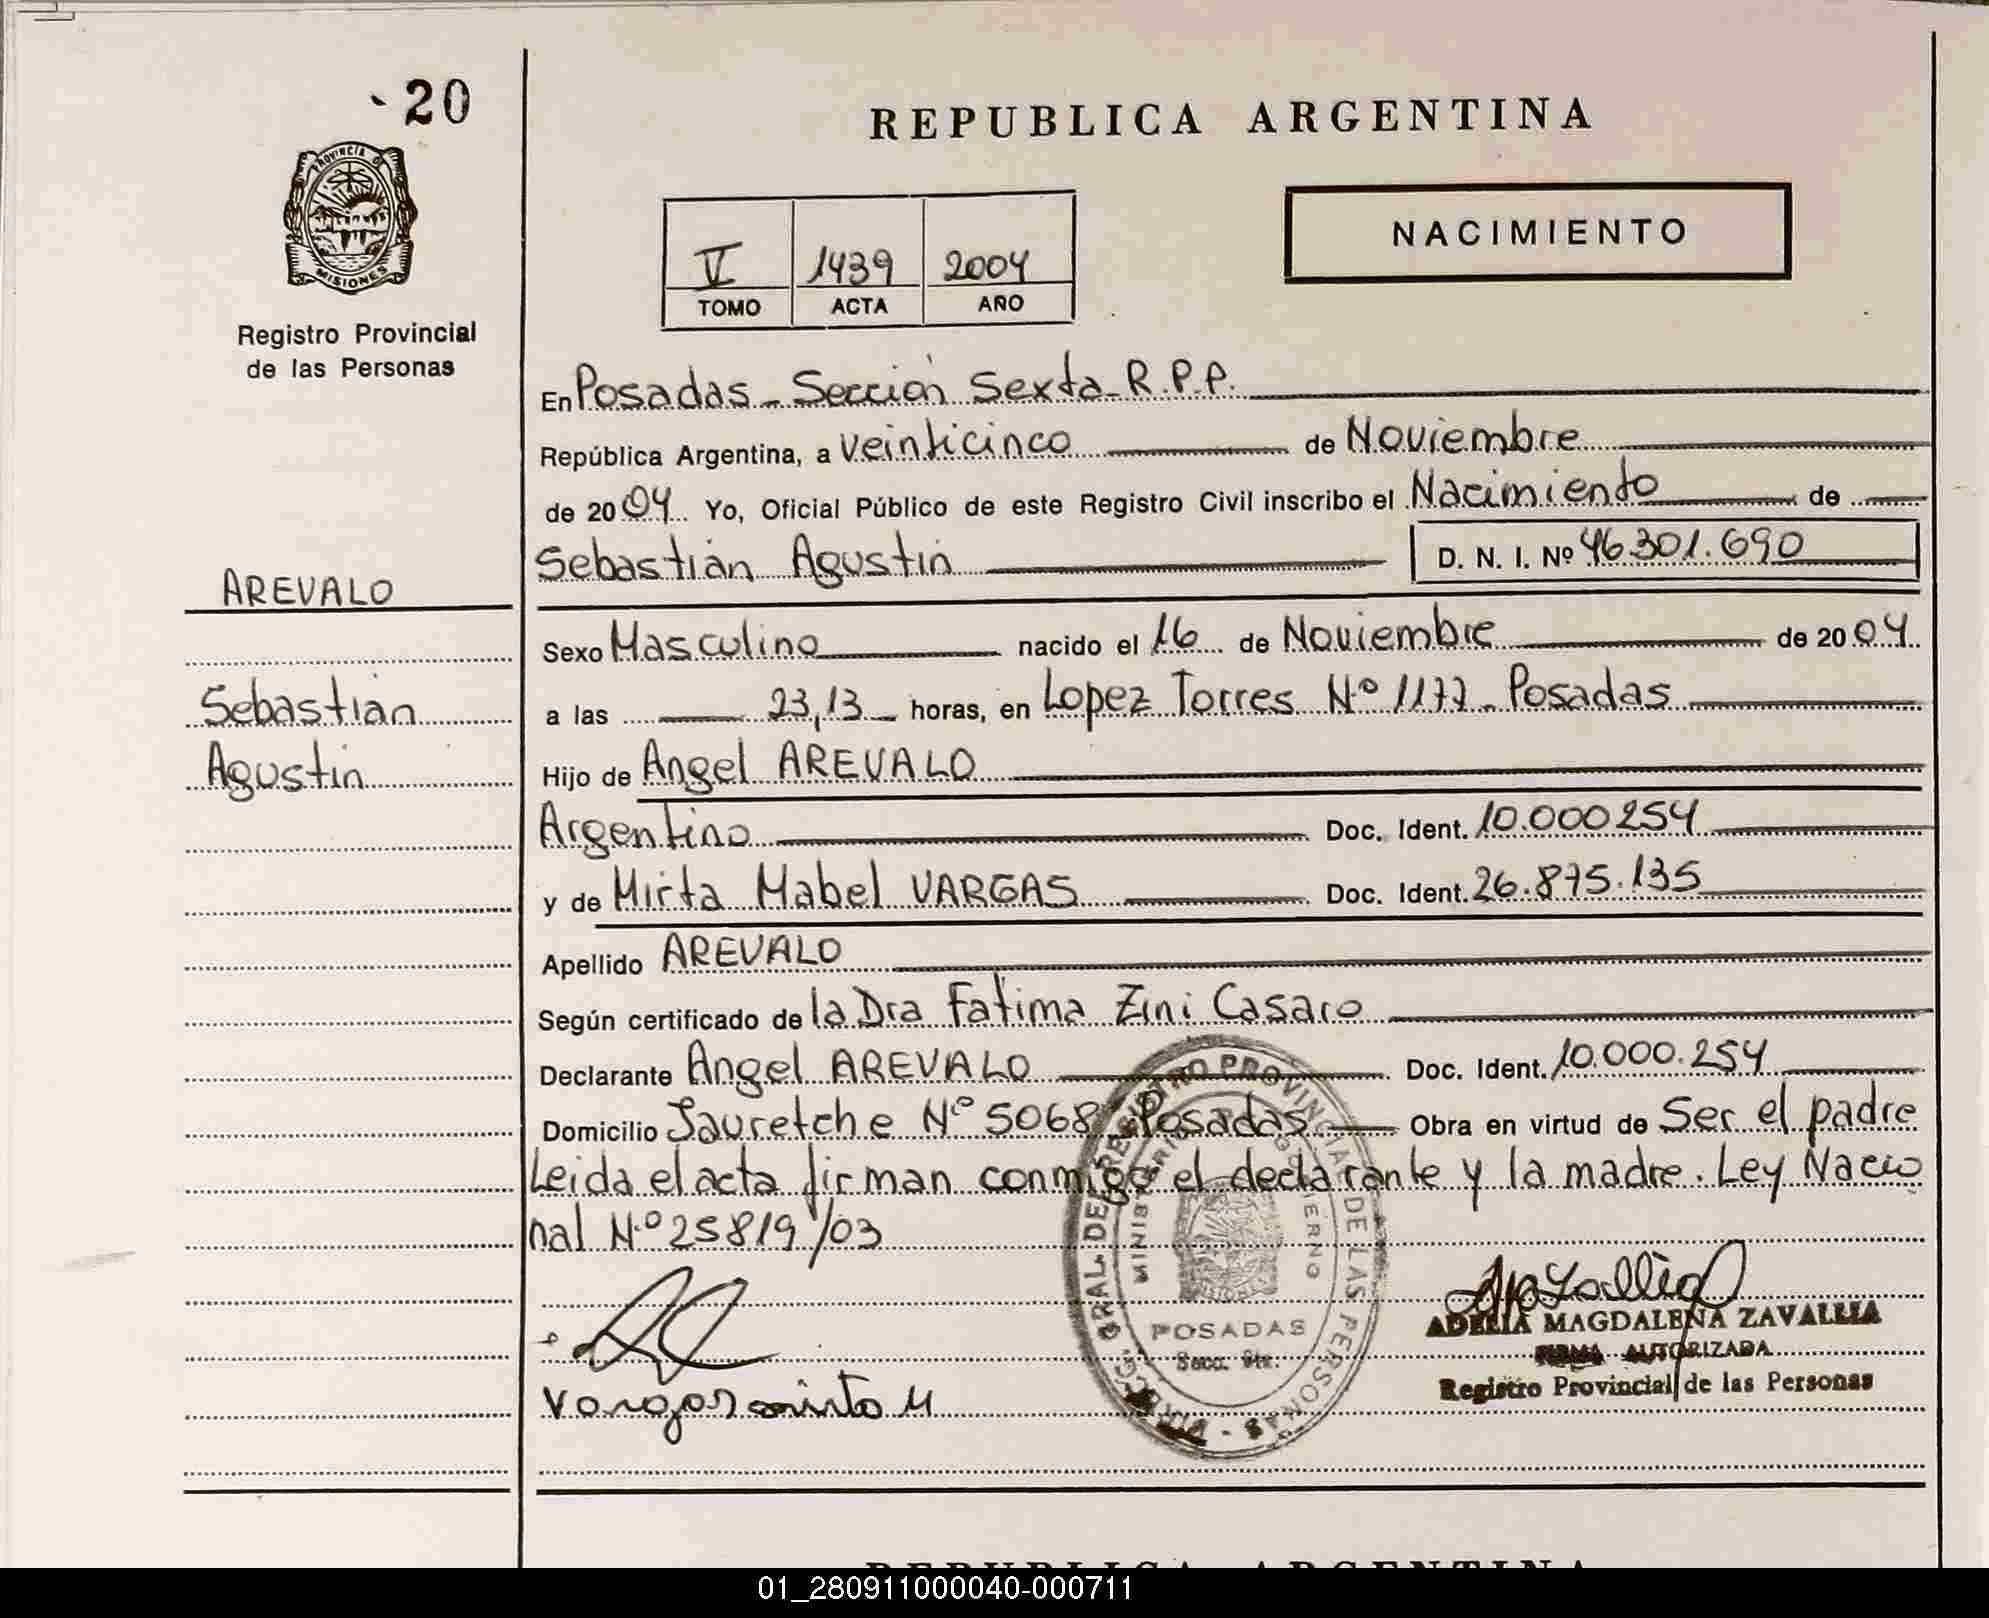 20
PROVINCIA DE
MISIONES
Registro Provincial
de las Personas
AREVALO
Sebastián
Agustín
REPUBLICA ARGENTINA
NACIMIENTO
V 1439 2004
TOMO ACTA AÑO
En Posadas - Sección Sexta - R.P.P.
República Argentina, a veinticinco de Noviembre
de 2004 Yo, Oficial Público de este Registro Civil inscribo el Nacimiento de
Sebastián Agustín D. N. I. Nº 46.301.690
Sexo Masculino nacido el 16 de Noviembre de 2004
a las 23,13 horas, en Lopez Torres Nº 1177 - Posadas
Hijo de Angel AREVALO
Argentino Doc. Ident. 10.000254
y de Mirta Mabel VARGAS Doc. Ident. 26.875.135
Apellido AREVALO
Según certificado de la Dra Fatima Zini Casaro
Declarante Angel AREVALO Doc. Ident. 10.000.254
Domicilio Jauretche Nº 5068 Posadas Obra en virtud de Ser el padre
Leida el acta firman conmigo el declarante y la madre. Ley Nacio
nal Nº 25819/03
Vargas mirta M
DIRECC. GRAL. DEL REGISTRO PROVINCIAL DE LAS PERSONAS
POSADAS
ADELIA MAGDALENA ZAVALLIA
FIRMA AUTORIZADA
Registro Provincial de las Personas
REPUBLICA ARGENTINA
01_280911000040-000711